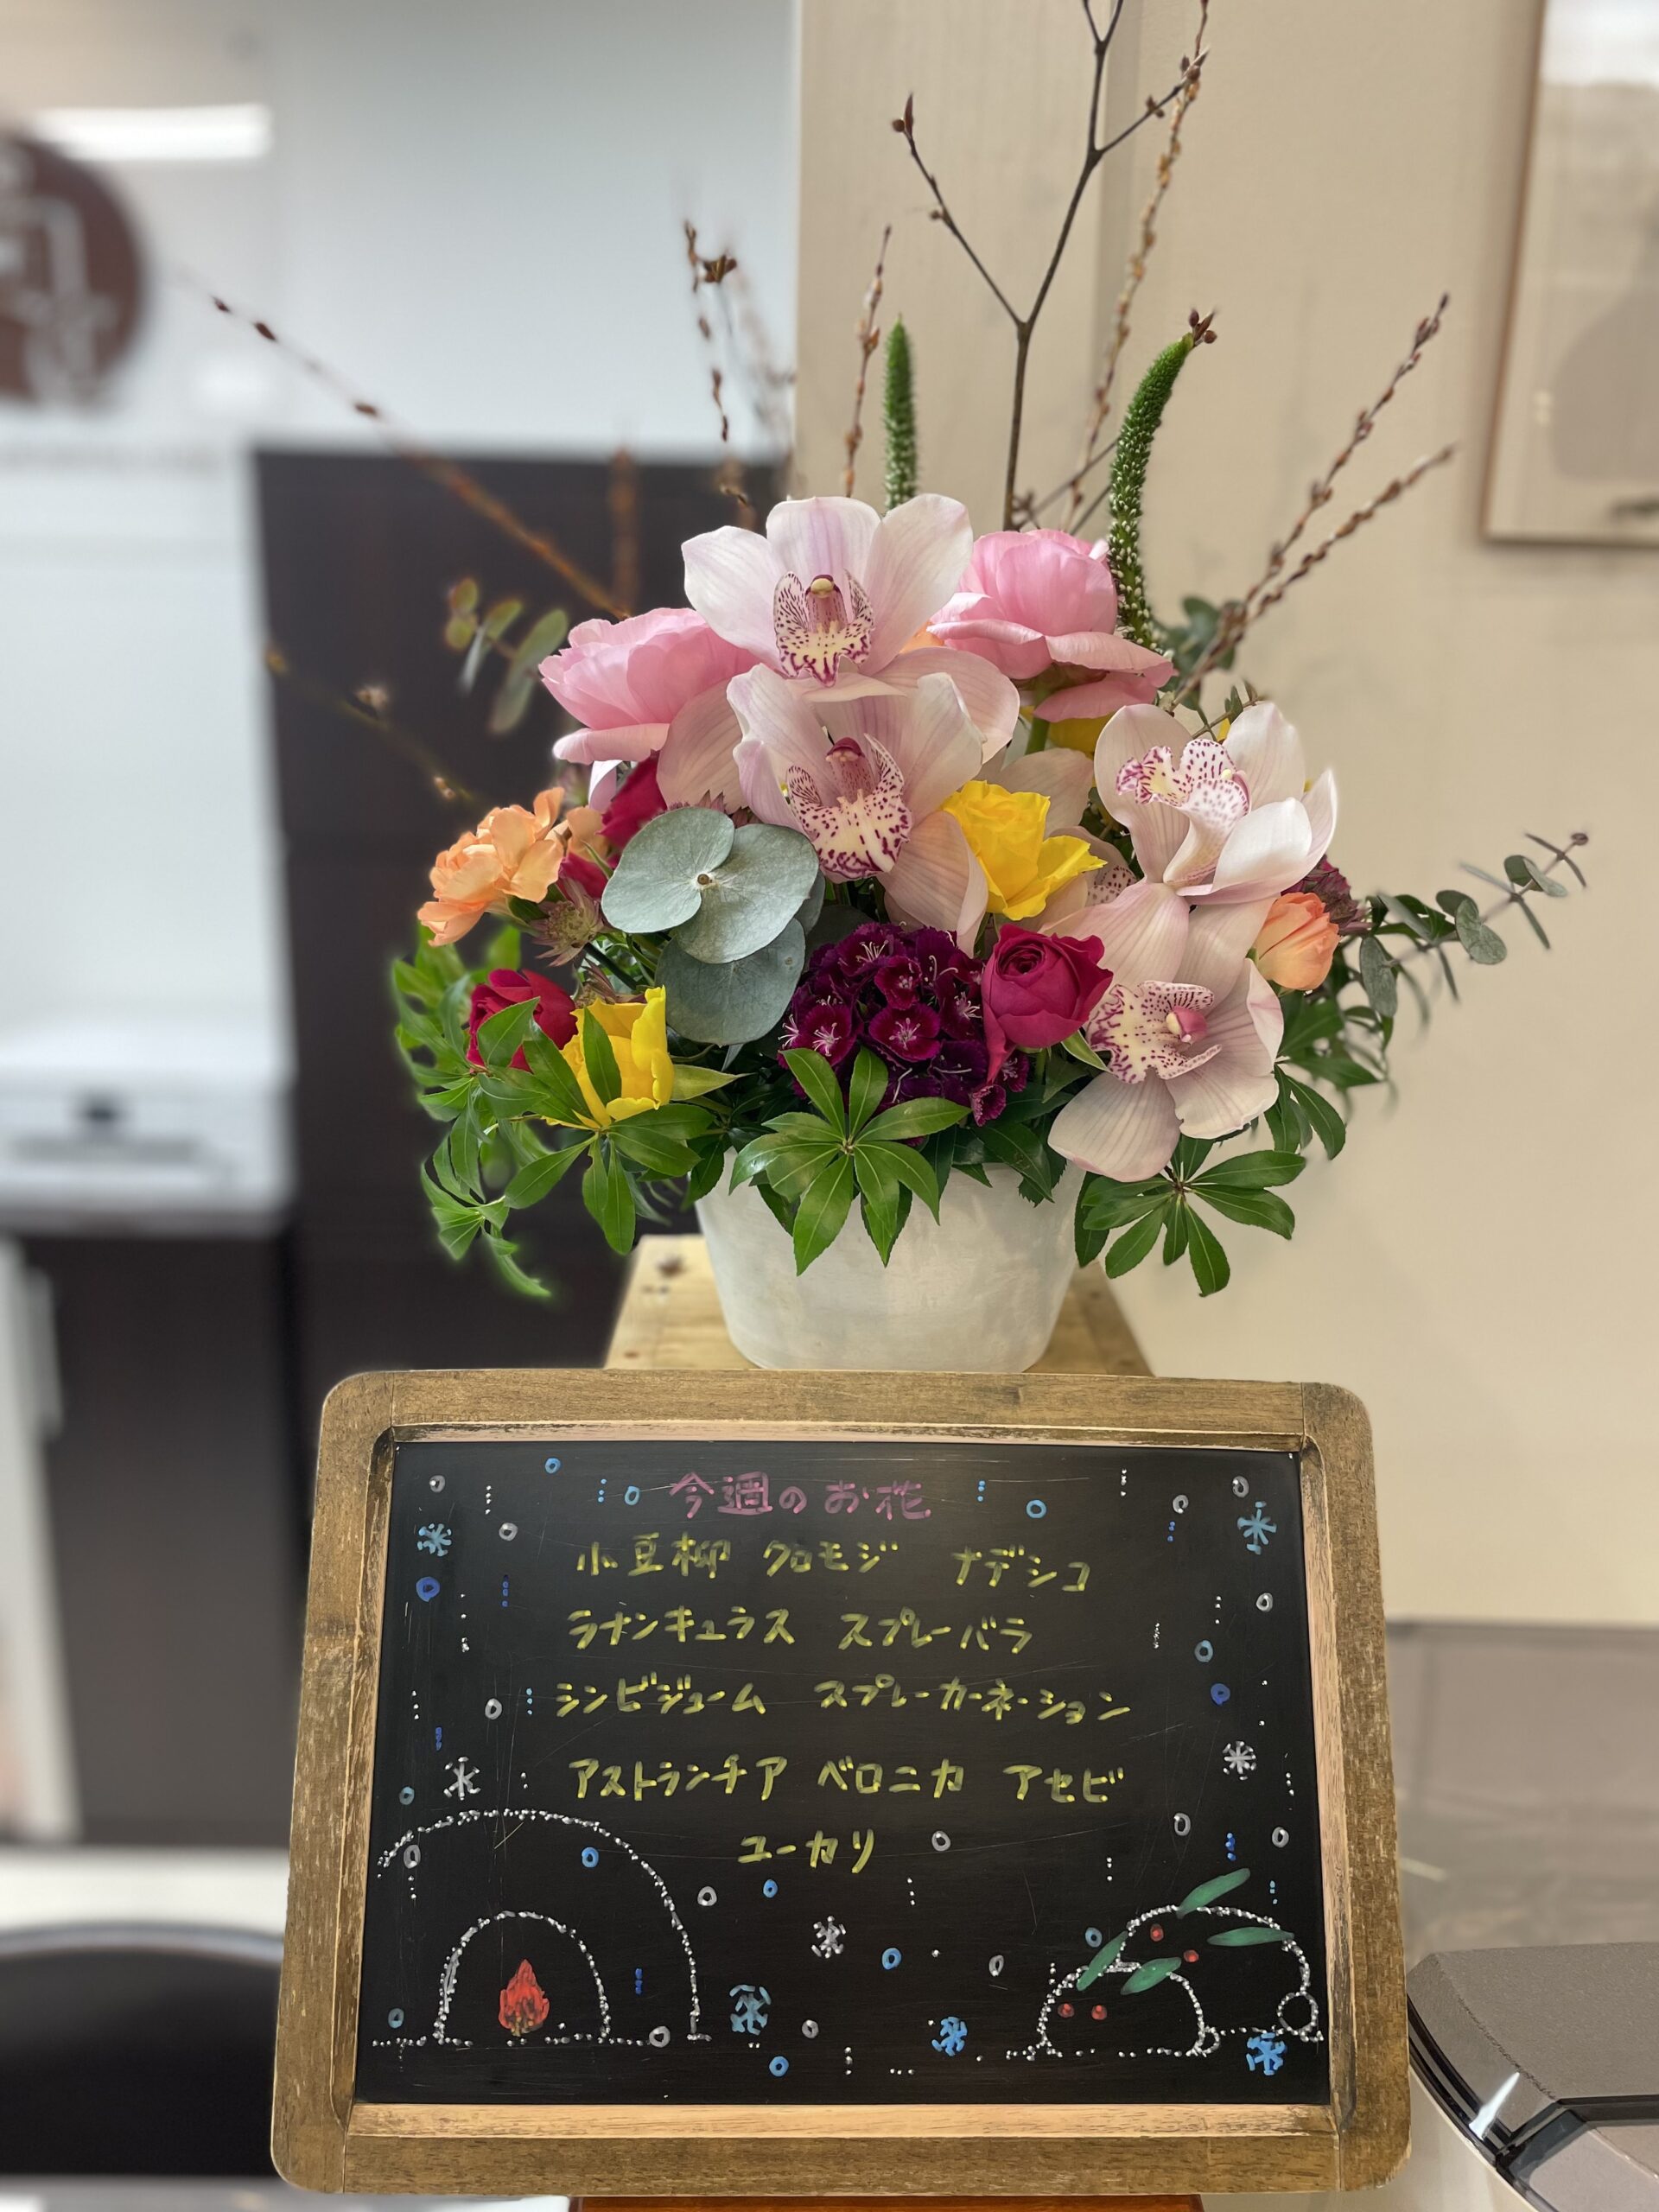 今週のお花
小豆柳 クロモジ ナデシコ
ラナンキュラス スプレーバラ
シンビジューム スプレーカーネーション
アストランチア ベロニカ アセビ
ユーカリ